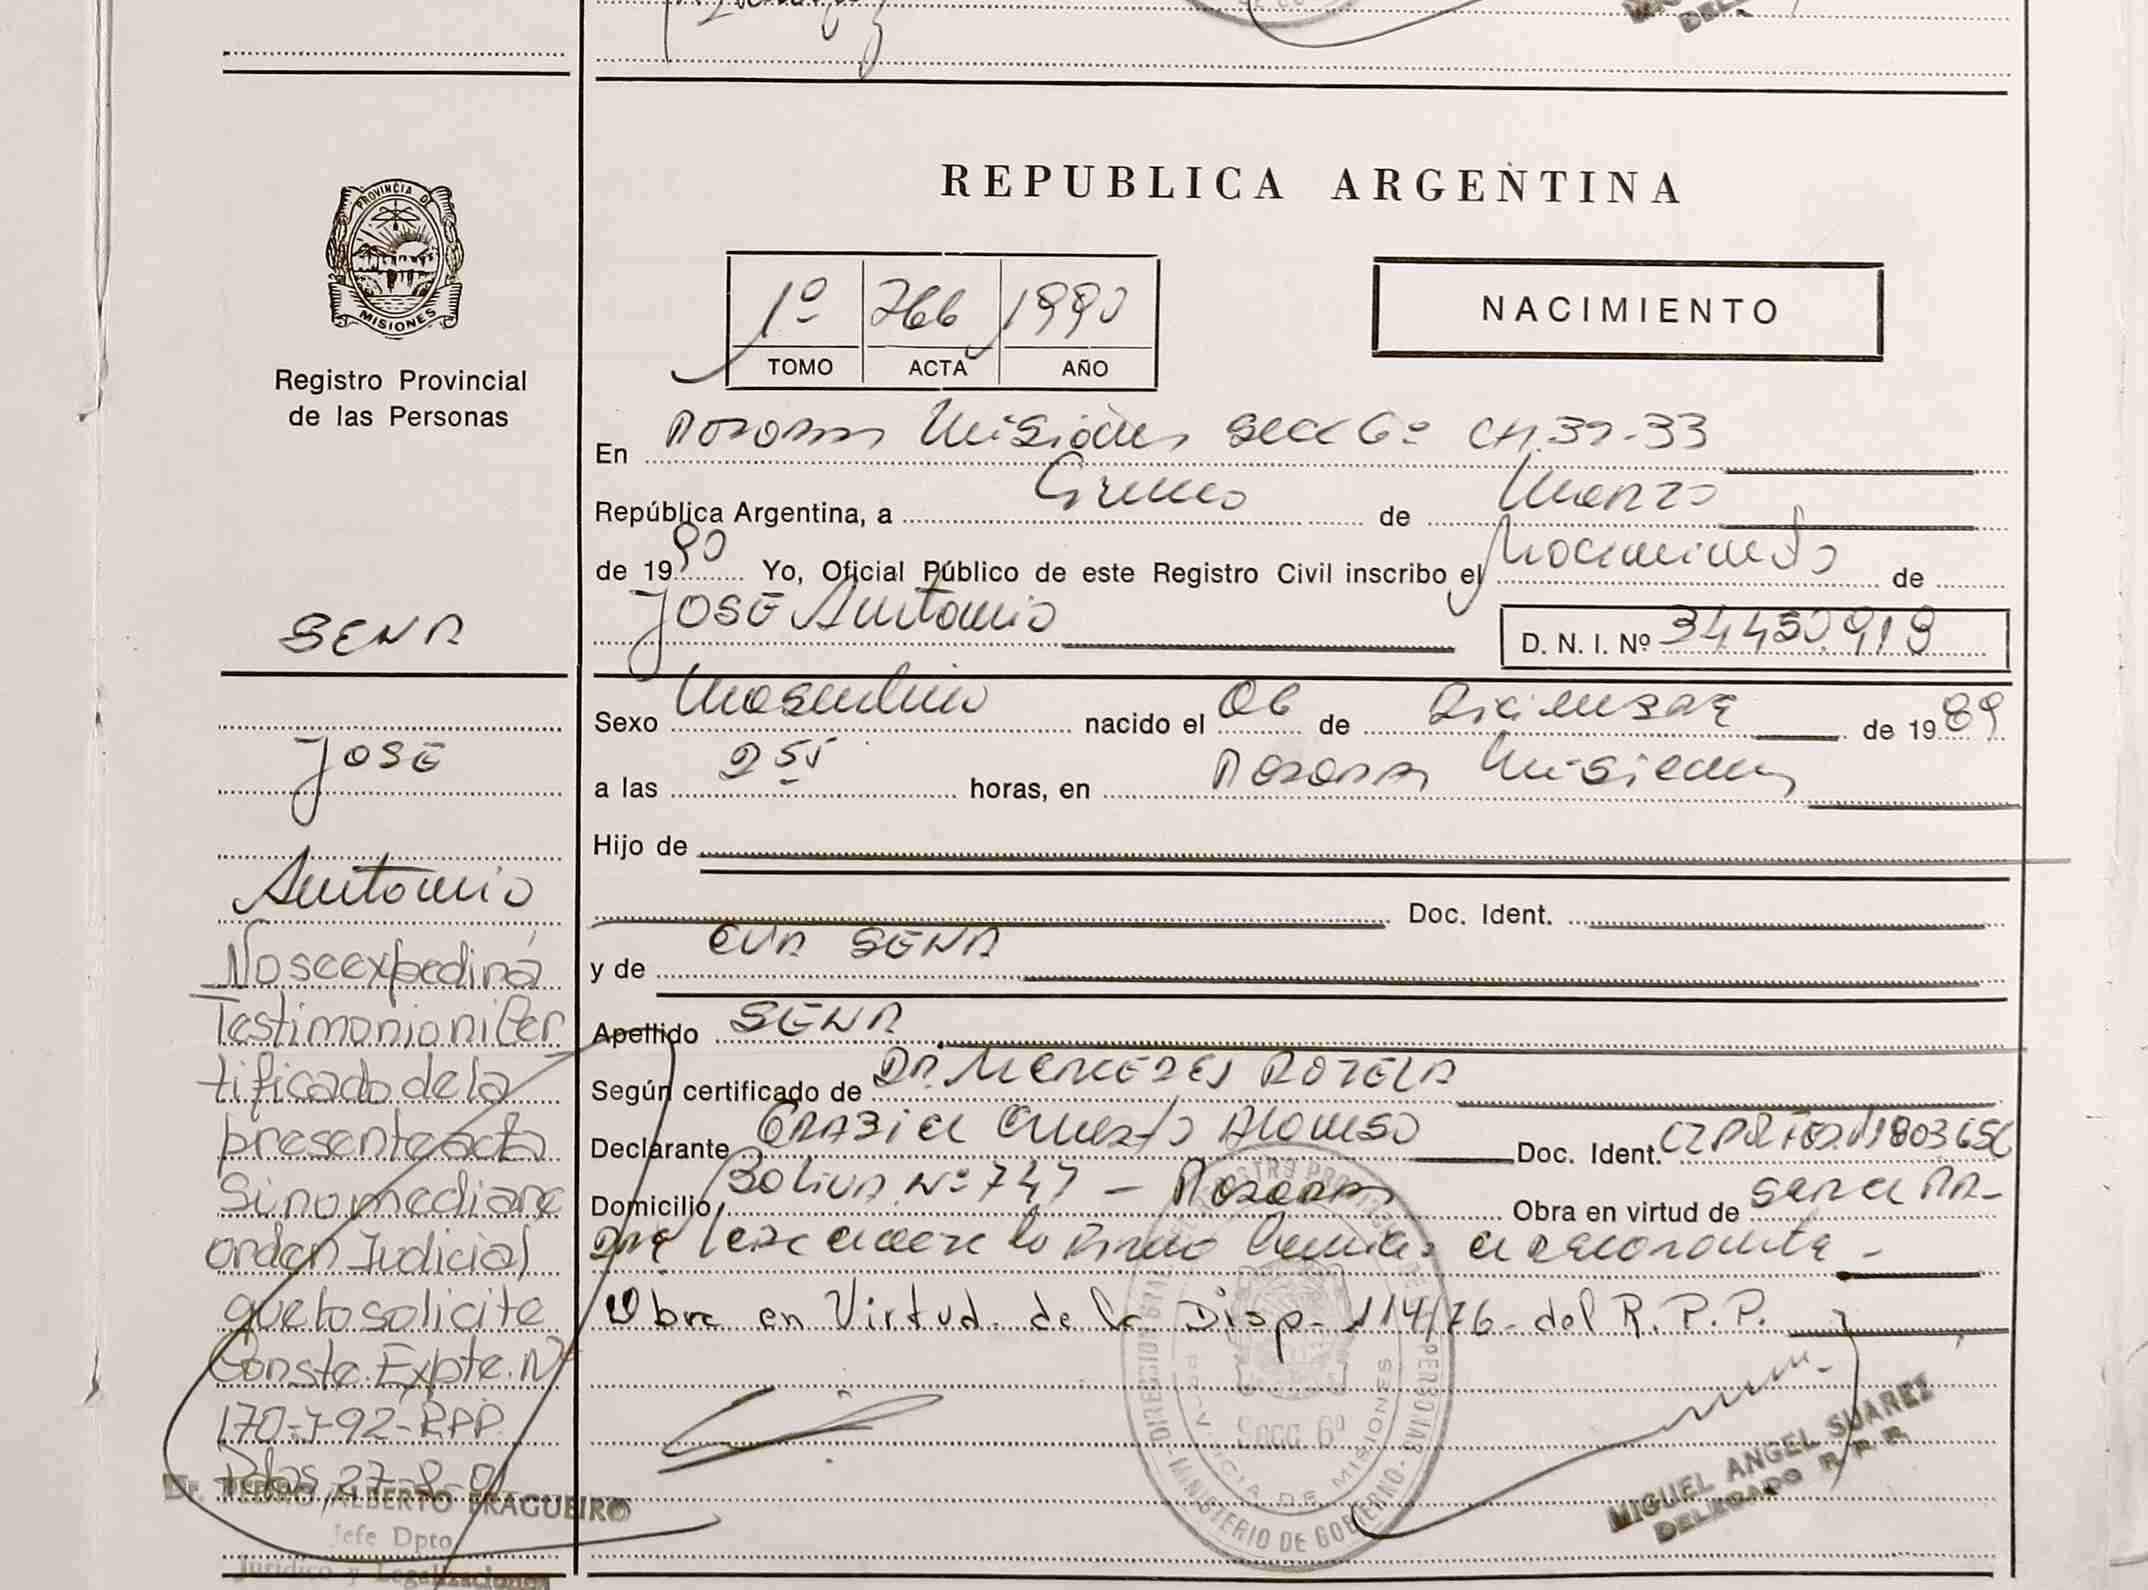 REPUBLICA ARGENTINA
PROVINCIA DE
MISIONES
Registro Provincial
de las Personas
1º 766 1990
TOMO ACTA AÑO
NACIMIENTO
En Posadas Misiones Secc 6º CH. 32-33
República Argentina, a Quince de Marzo
de 1990 Yo, Oficial Público de este Registro Civil inscribo el Nacimiento de
JOSE Antonio D. N. I. Nº 34.450.919
SENA
Sexo Masculino nacido el 06 de Diciembre de 1989
JOSE
a las 2 55 horas, en Posadas Misiones
Hijo de
Antonio
Doc. Ident.
y de EVA SENA
Apellido SENA
Según certificado de DR. MERCEDES
Declarante Ernesto Alonso Doc. Ident.
Domicilio Nº 747 - Posadas Obra en virtud de ser el
Obra en Virtud de la Disp. 114/76 del R. P. P.
No se expedirá
Testimonio ni Cer
tificado de la
presente acta
Sino mediare
orden Judicial
que lo solicite
Conste. Expte. Nº
170-7-92-RPP.
Pdas, 27-8-01
Dr. PEDRO ALBERTO FRAGUEIRO
Jefe Dpto
Jurídico y Legalizaciones
Secc 6º
PROVINCIA DE MISIONES
MINISTERIO DE GOBIERNO
MIGUEL ANGEL SUAREZ
DELEGADO R. P. P.